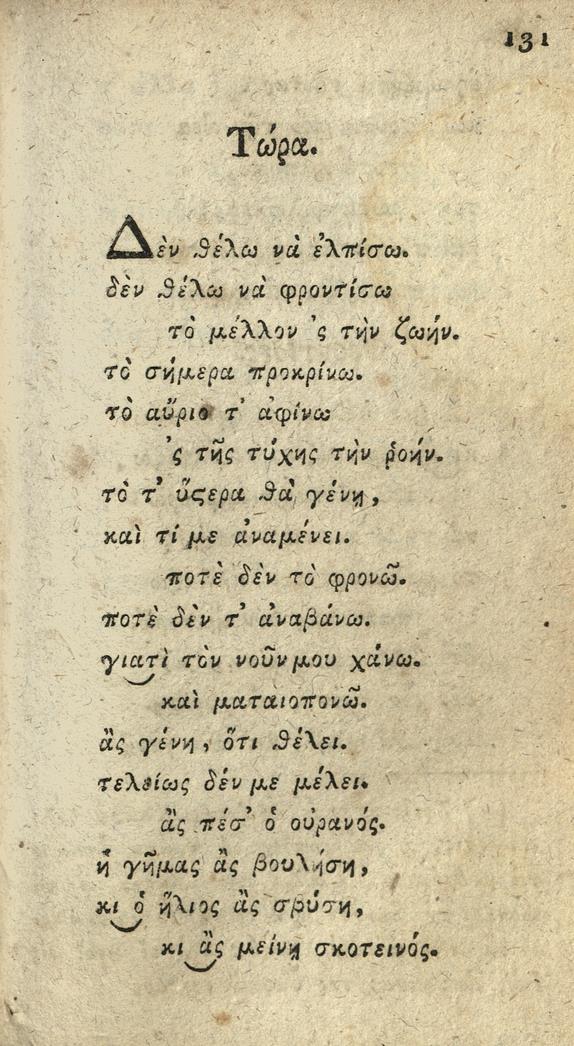 131
Τώρα.
Δὲν θέλω νὰ ἐλπίσω.
δὲν θέλω νὰ φροντίσω
τὸ μέλλον 'ς τὴν ζωήν.
τὸ σήμερα προκρίνω.
τὸ αὔριο τ' ἀφίνω
'ς τῆς τύχης τὴν ῥοήν.
τὸ τ' ὕϛερα θὰ γένῃ,
καὶ τί με ἀναμένει.
ποτὲ δὲν τὸ φρονῶ.
ποτὲ δὲν τ' ἀναβάνω.
γιατὶ τὸν νοῦνμου χάνω.
καὶ ματαιοπονῶ.
ἂς γένῃ, ὅτι θέλει.
τελείως δέν με μέλει.
ἂς πέσ' ὁ οὐρανός.
ἡ γῆμας ἂς βουλήσῃ,
κι ὁ ἥλιος ἂς σβύσῃ,
κι ἂς μείνῃ σκοτεινός.